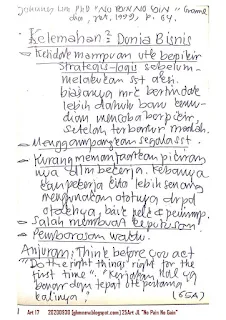 Johannes Lim PhD "NO PAIN NO GAIN" Grame
dia, Jkt, 1999, p. 64.
Kelemahan² Dunia Bisnis
- Ketidak mampuan utk berpikir
Strategis-logis sebelum
melakukan sst aksi.
biasanya mrk bertindak
lebih dahulu baru kemu-
dian mencoba berpikir,
setelah terbentur masalah.
- Menggampangkan segala sst.
- Kurang memanfaatkan pikiran
nya dlm bekerja. Kebanya
kan pekerja kita lebih senang
menggunakan ototnya drpd
otaknya, baik pekerja
- Salah membuat keputusan.
- Pemborosan waktu.
Anjuran: Think before you act
"Do the right things right for the
first time". "Kerjakan hal yg
benar dgn tepat utk pertama
kalinya."
(65A)
Art 17 20200930 (gbmonw.blogspot.com) 25Art JL "No Pain No Gain"